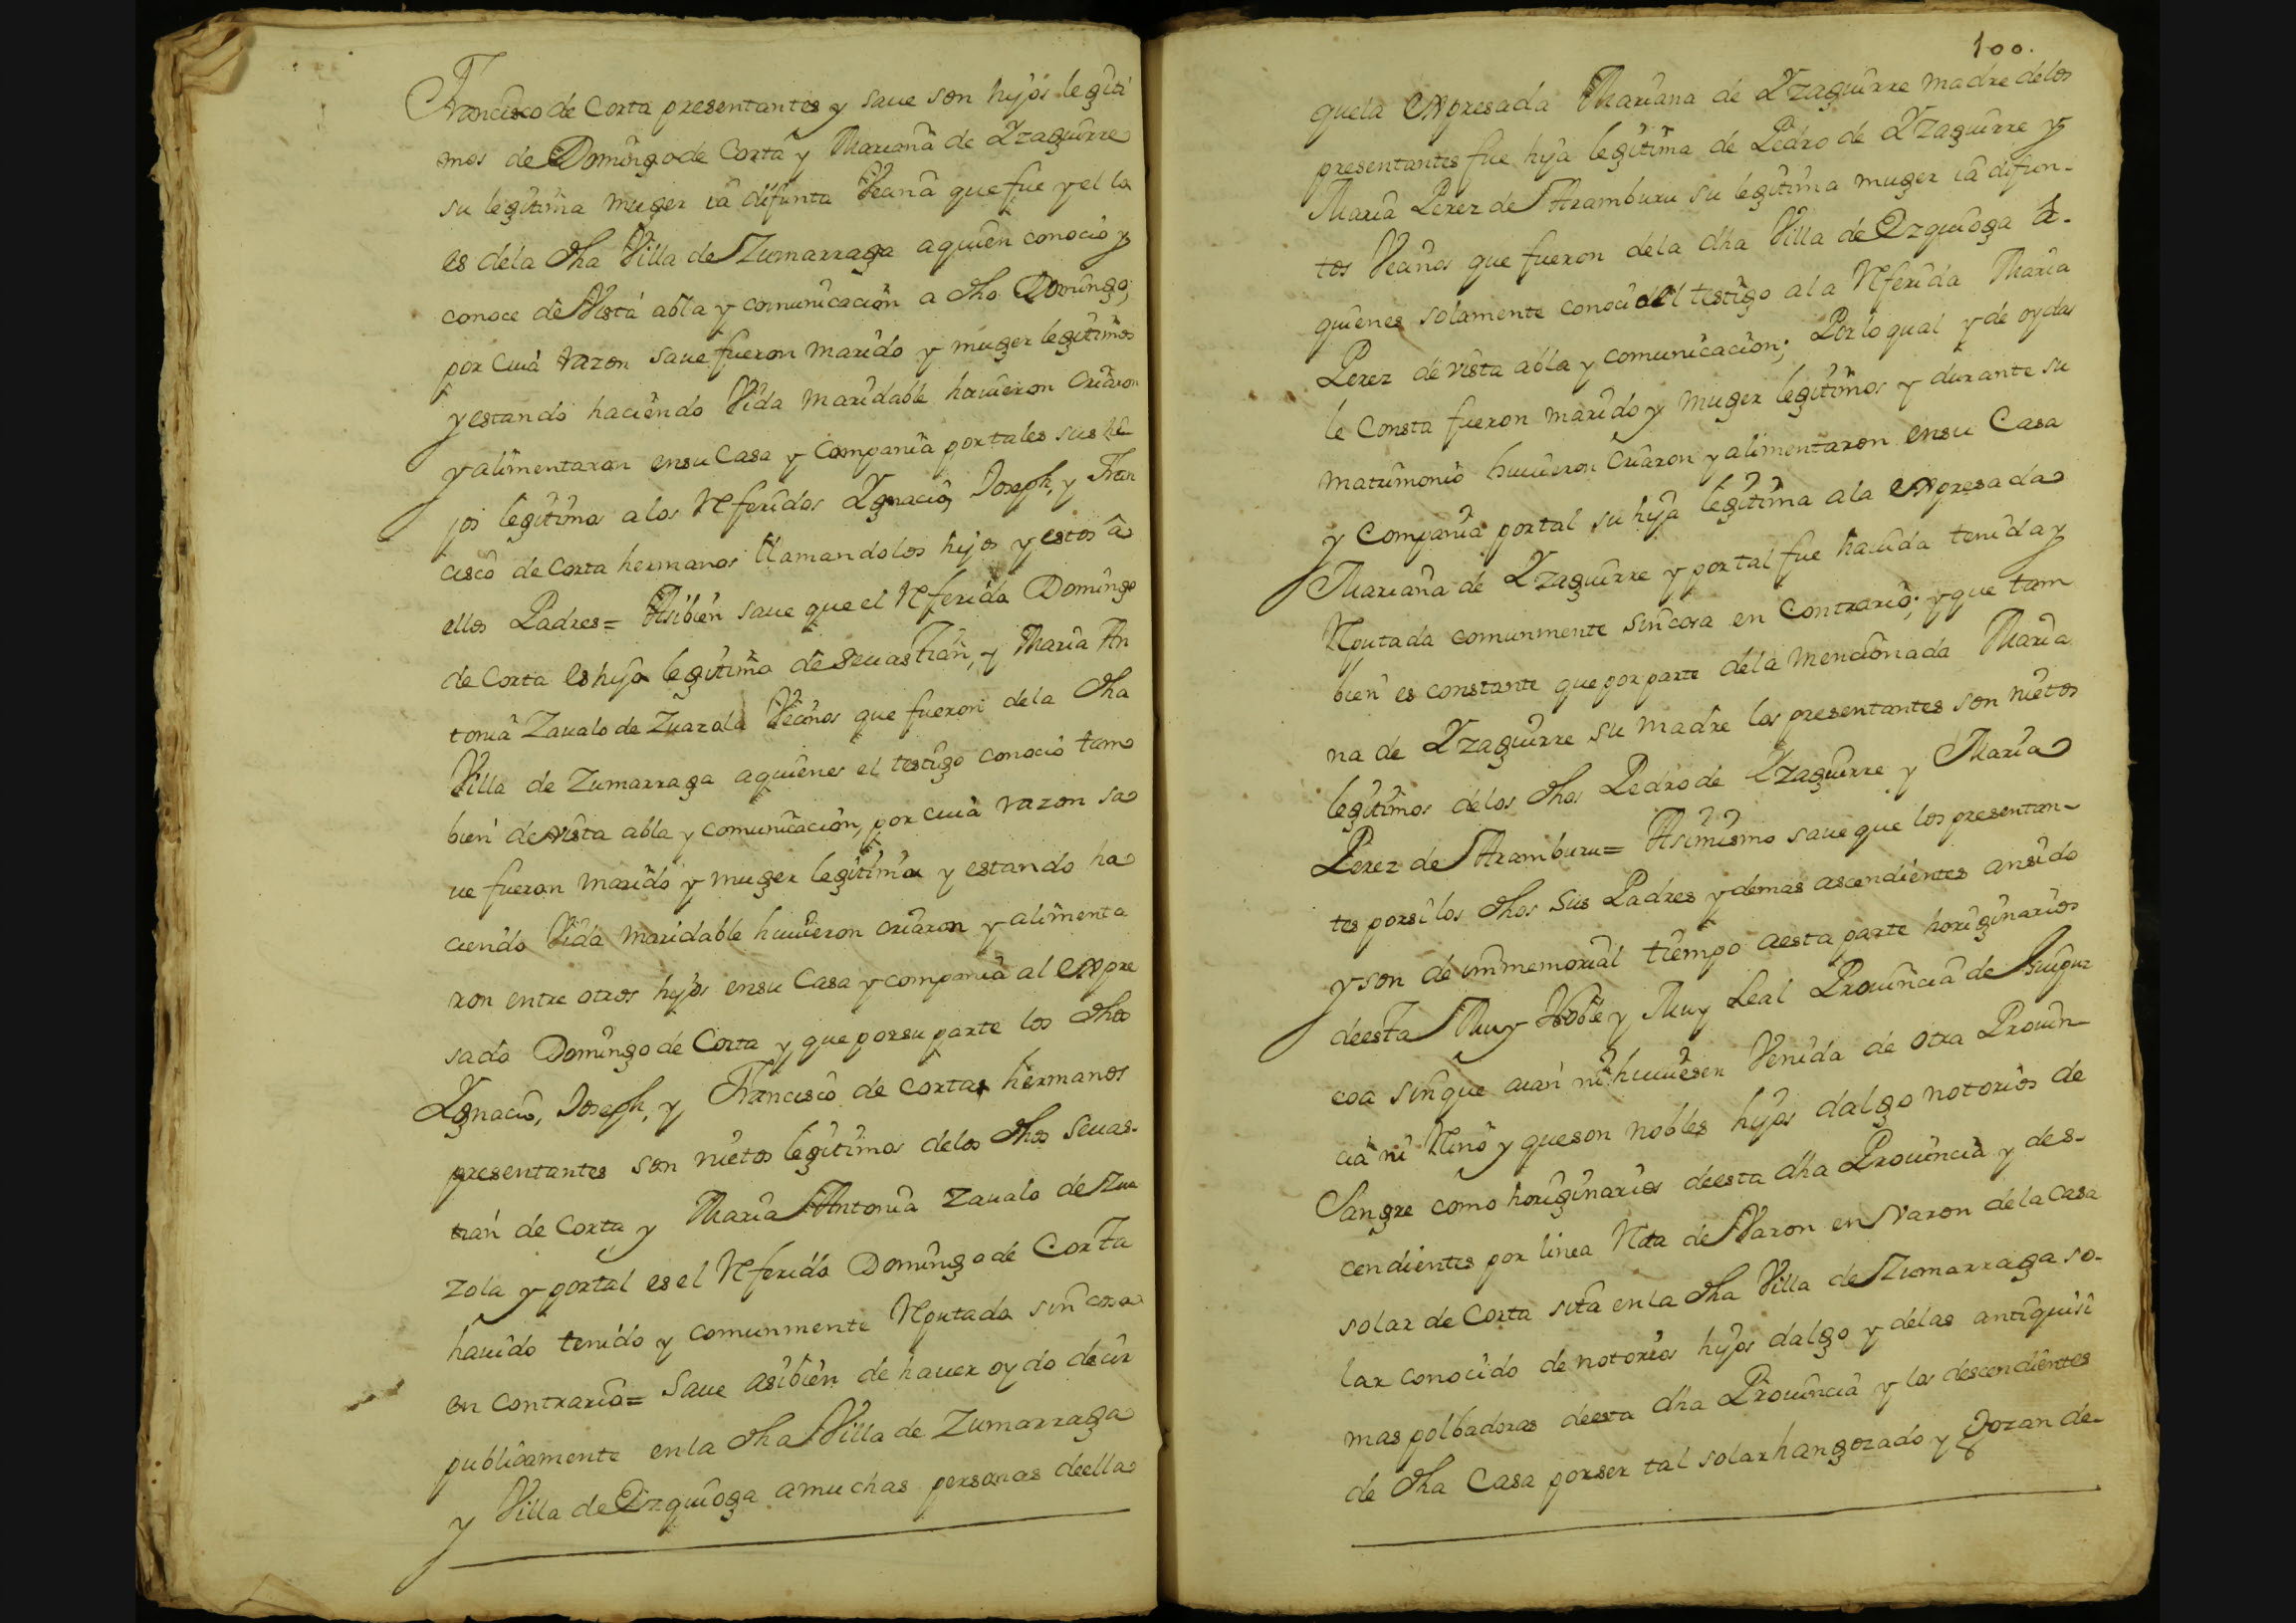 Francisco de Corta presentantes y saue son hijos legiti
mos de Domingo de Corta y Mariana de Yzaguirre
su legitima muger ia difunta Vecina que fue y el lo
es dela dha Villa de Zumarraga a quien conocio y
conoce de Vista abla y comunicacion a dho Domingo;
por cuia razon saue fueron marido y muger legitimos
y estando haciendo Vida maridable huuieron criaron
y alimentaron ensu Casa y Compania por tales sus hi
jos legitimos alos Referidos Ygnacio, Joseph, y Fran
cisco de Corta hermanos llamandolos hijos y estos a
ellos Padres= Asibien saue que el Referido Domingo
de Corta es hijo legitimo de Seuastian, y Maria An
tonia Zaualo de Zuazola Vecinos que fueron dela dha
Villa de Zumarraga aquienes el testigo conocio tam
bien de vista abla y comunicacion, por cuia razon sa
ue fueron marido y muger legitimos y estando ha
ciendo Vida maridable huuieron criaron y alimenta
ron entre otros hijos ensu Casa y compania al expre
sado Domingo de Corta y que por su parte los dhos
Ygnacio, Joseph, y Francisco de Corta hermanos
presentantes son nietos legitimos delos dhos Seuas-
tian de Corta y Maria Antonia Zaualo de Zua
zola y portal es el Referido Domingo de Corta
hauido tenido y comunmente Reputado sin cosa
en contrario= Saue asibien de hauer oydo decir
publicamente enla dha Villa de Zumarraga
y Villa de Ezquioga amuchas personas deella
100.
quela expresada Mariana de Yzaguirre madre delos
presentantes fue hija legitima de Pedro de Yzaguirre y
Maria Perez de Aramburu su legitima muger ia difun-
tos Vecinos que fueron dela dha Villa de Ezquioga a-
quienes solamente conocio el testigo ala Referida Maria
Perez de vista abla y comunicacion; Porlo qual y de oydas
le Consta fueron marido y muger legitimos y durante su
matrimonio huuieron Criaron y alimentaron ensu Casa
y Compania portal su hija legitima ala expresada
Mariana de Yzaguirre y por tal fue hauida tenida y
Reputada comunmente sin cosa en Contrario; y que tam
bien es constante que por parte dela mencionada Maria
na de Yzaguirre su madre los presentantes son nietos
legitimos delos dhos Pedro de Yzaguirre y Maria
Perez de Aramburu= Asimismo saue que los presentan-
tes porsi los dhos sus Padres y demas ascendientes ansido
y son de immemorial tiempo aesta parte horiginarios
deesta Muy Noble y Muy Leal Prouincia de Guipuz
coa sinque aian ni huuiesen Venido de otra Prouin-
cia ni Reino y queson nobles hijos dalgo notorios de
Sangre como horiginarios deesta dha Prouincia y des-
cendientes por linea Recta de Varon en Varon dela Casa
solar de Corta sita enla dha Villa de Zumarraga so-
lar conocido de notorios hijos dalgo y delas antiquisi
mas polbadoras deesta dha Prouincia y los descendientes
de dha Casa porser tal solar hangozado y gozan de-